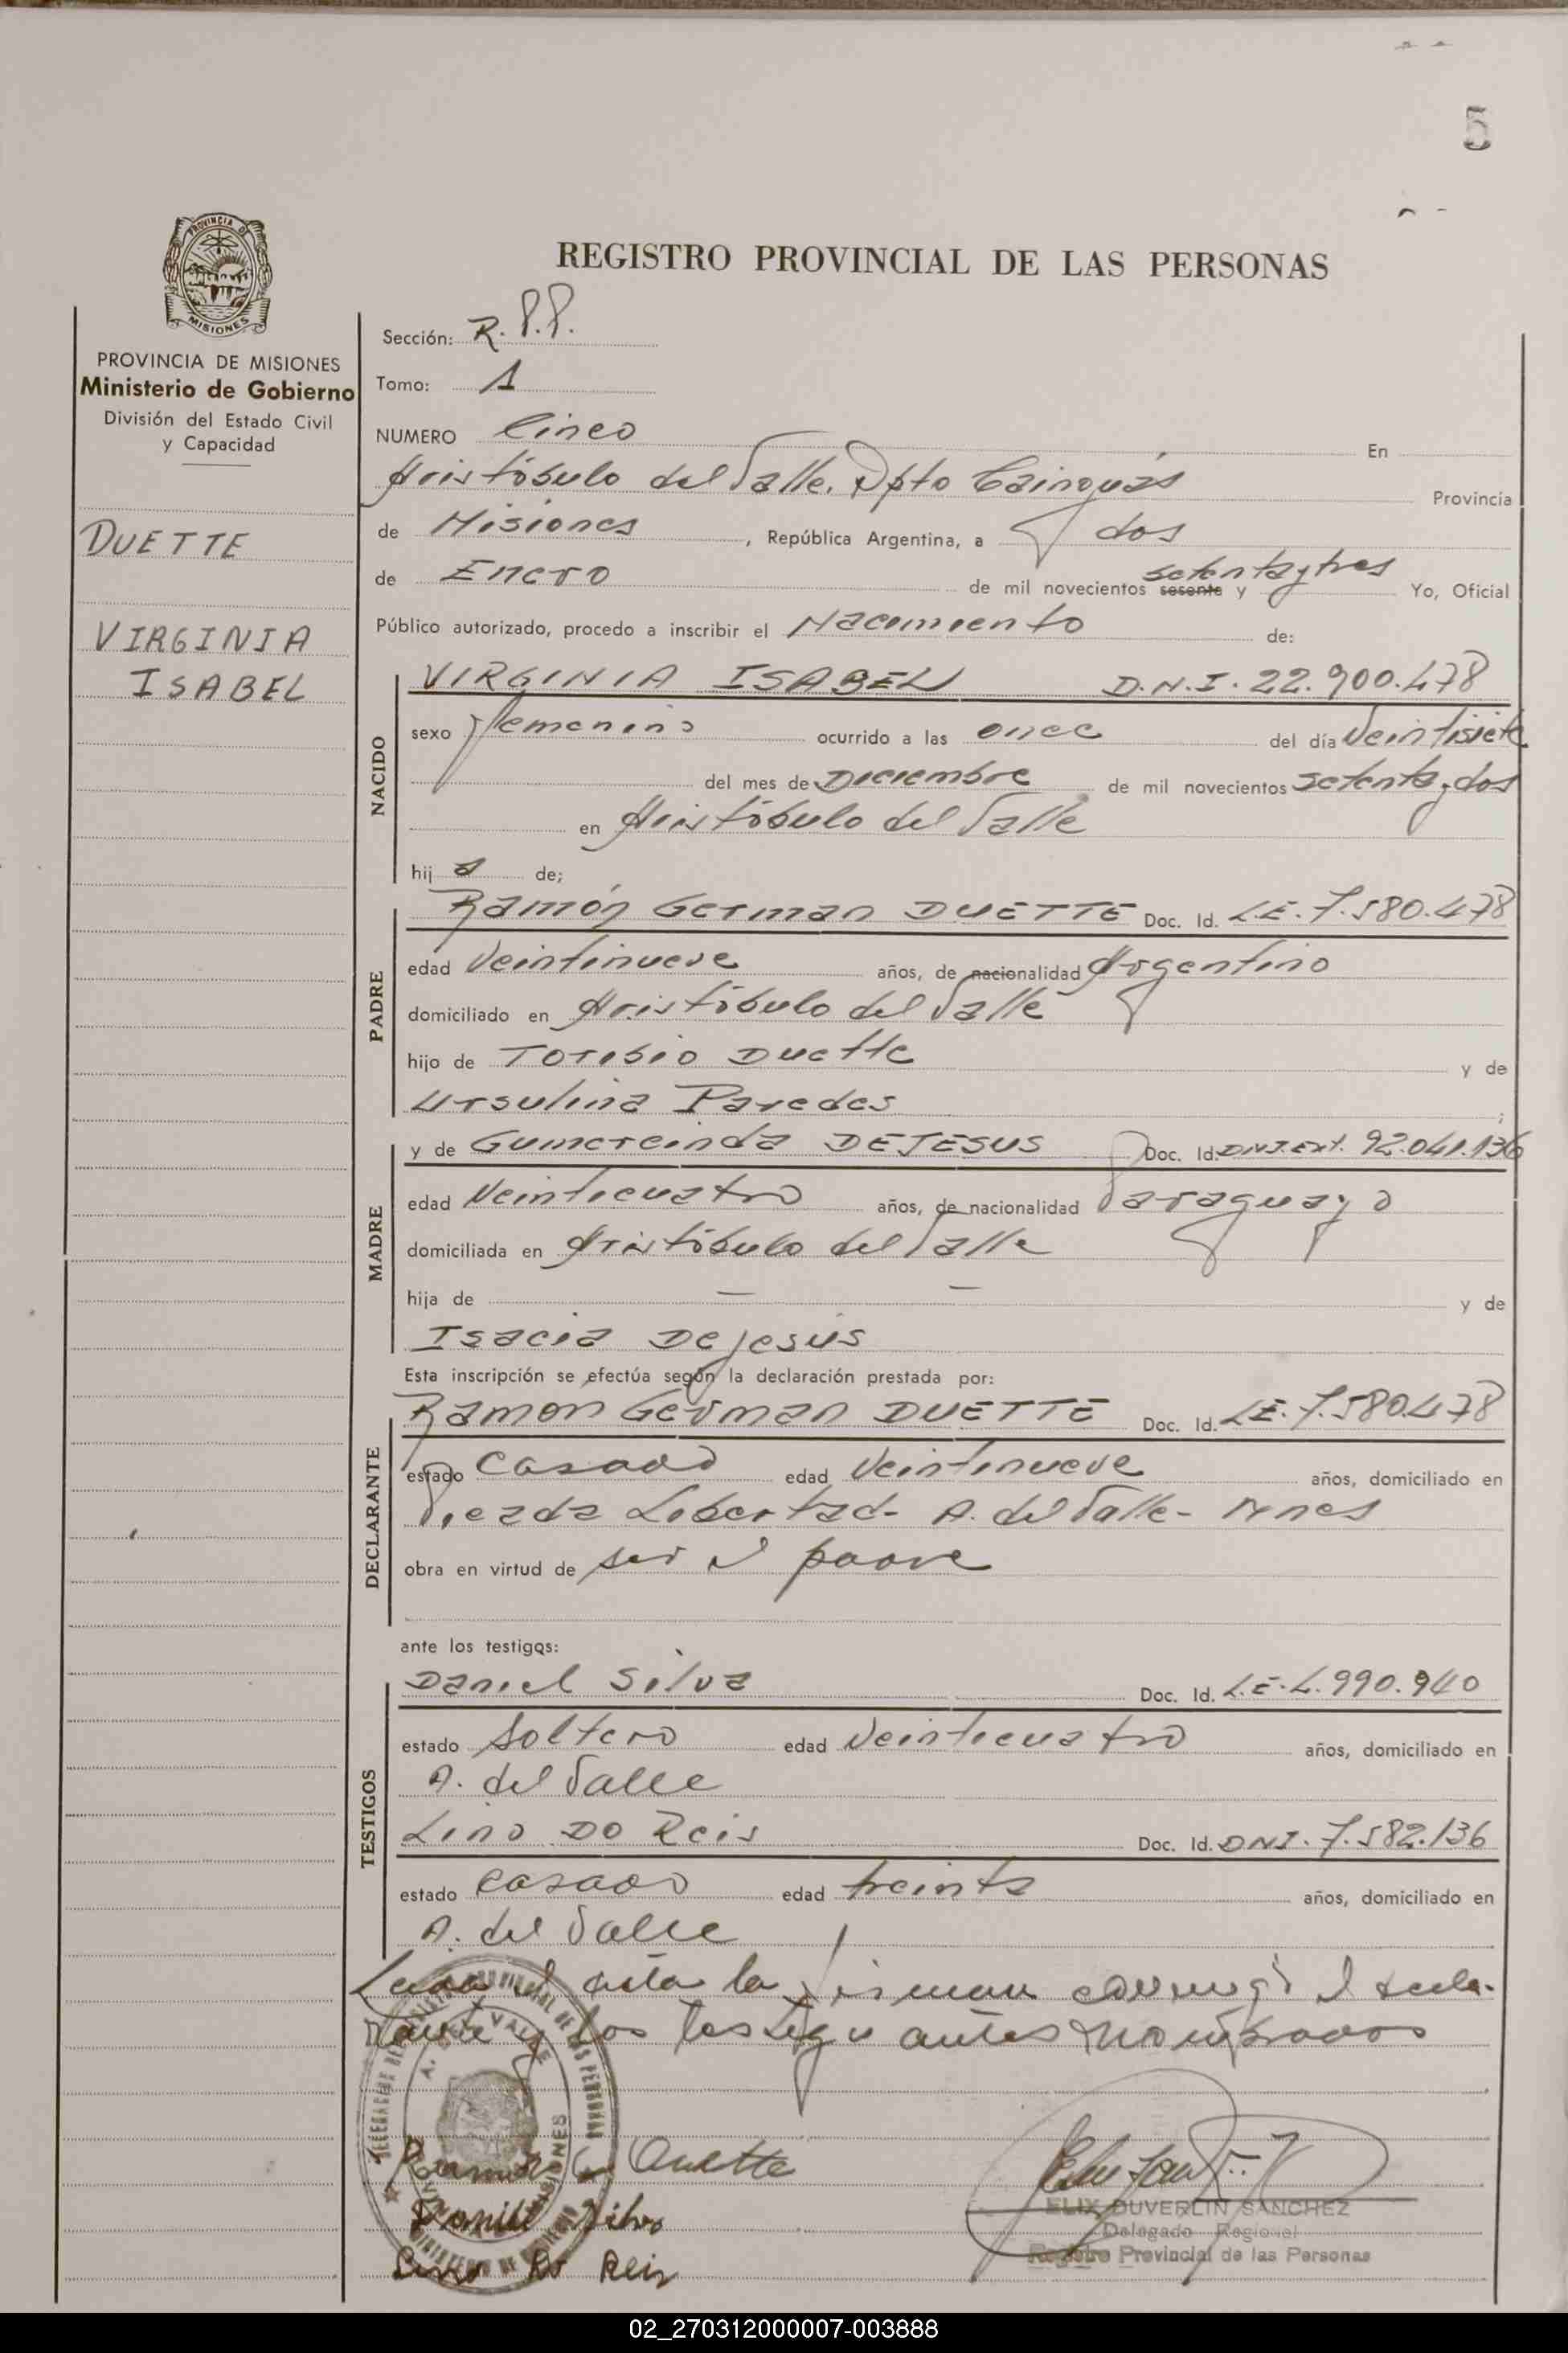 5
PROVINCIA DE
MISIONES
PROVINCIA DE MISIONES
Ministerio de Gobierno
División del Estado Civil
y Capacidad
DUETTE
VIRGINIA
ISABEL
REGISTRO PROVINCIAL DE LAS PERSONAS
Sección: R.P.P.
Tomo: 1
NUMERO Cinco En
Aristóbulo del Valle, Dpto Cainguás Provincia
de Misiones, República Argentina, a dos
de Enero de mil novecientos sesenta y setenta y tres Yo, Oficial
Público autorizado, procedo a inscribir el Nacimiento de:
NACIDO
VIRGINIA ISABEL D.N.I. 22.900.478
sexo femenino ocurrido a las once del día Veintisiete
del mes de Diciembre de mil novecientos setenta y dos
en Aristóbulo del Valle
hij a de;
PADRE
Ramón German DUETTE Doc. Id. L.E. 7.580.478
edad Veintinueve años, de nacionalidad Argentino
domiciliado en Aristóbulo del Valle
hijo de Toribio Duette y de
Ursulina Paredes ;
MADRE
y de Gumercinda DEJESUS Doc. Id. DNI.Ext. 92.041.136
edad Veinticuatro años, de nacionalidad Paraguaya
domiciliada en Aristóbulo del Valle
hija de — — y de
Isacia Dejesús
Esta inscripción se efectúa según la declaración prestada por:
DECLARANTE
Ramon German DUETTE Doc. Id. L.E. 7.580.478
estado Casado edad Veintinueve años, domiciliado en
Picada Libertad - A. del Valle - Mnes
obra en virtud de ser el padre
ante los testigos:
TESTIGOS
Daniel Silva Doc. Id. L.E. 4.990.940
estado Soltero edad Veinticuatro años, domiciliado en
A. del Valle
Lino Do Reis Doc. Id. DNI. 7.582.136
estado Casado edad treinta años, domiciliado en
A. del Valle
Leida el acta la firman conmigo el decla-
rante y los testigos antes nombrados
A. DEL VALLE
MISIONES
Ramon G Duette
Daniel Silva
Lino Do Reis
ELIX DUVERLIN SANCHEZ
Delegado Regional
Registro Provincial de las Personas
02_270312000007-003888